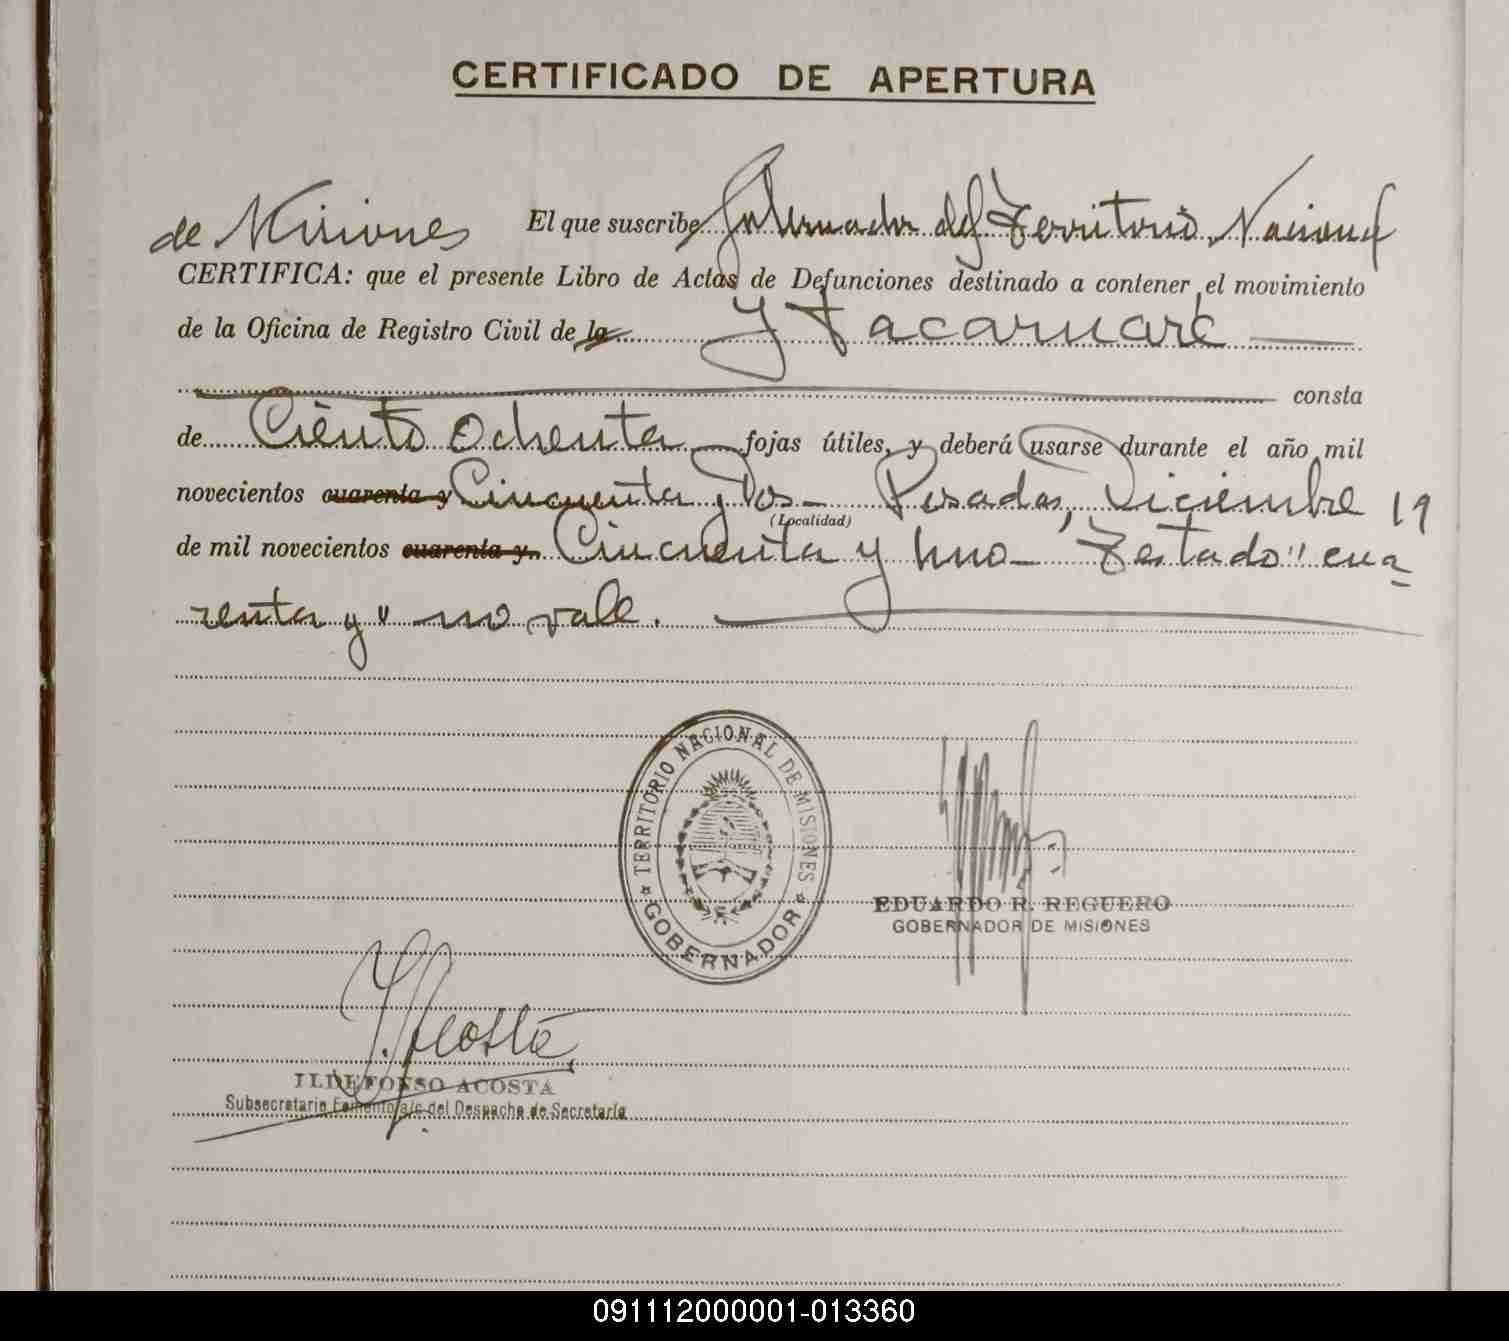 CERTIFICADO DE APERTURA
El que suscribe Gobernador del Territorio Nacional
de Misiones
CERTIFICA: que el presente Libro de Actas de Defunciones destinado a contener el movimiento
de la Oficina de Registro Civil de la Ytacaruaré
consta
de Ciento Ochenta fojas útiles, y deberá usarse durante el año mil
novecientos cuarenta y Cincuenta y Dos Posadas, Diciembre 19
(Localidad)
de mil novecientos cuarenta y Cincuenta y uno Testado "cua
renta y" no vale.
TERRITORIO NACIONAL DE MISIONES
GOBERNADOR
EDUARDO R. REGUERO
GOBERNADOR DE MISIONES
I. Acosta
ILDEFONSO ACOSTA
Subsecretario Fomento a/c del Despacho de Secretaría
091112000001-013360